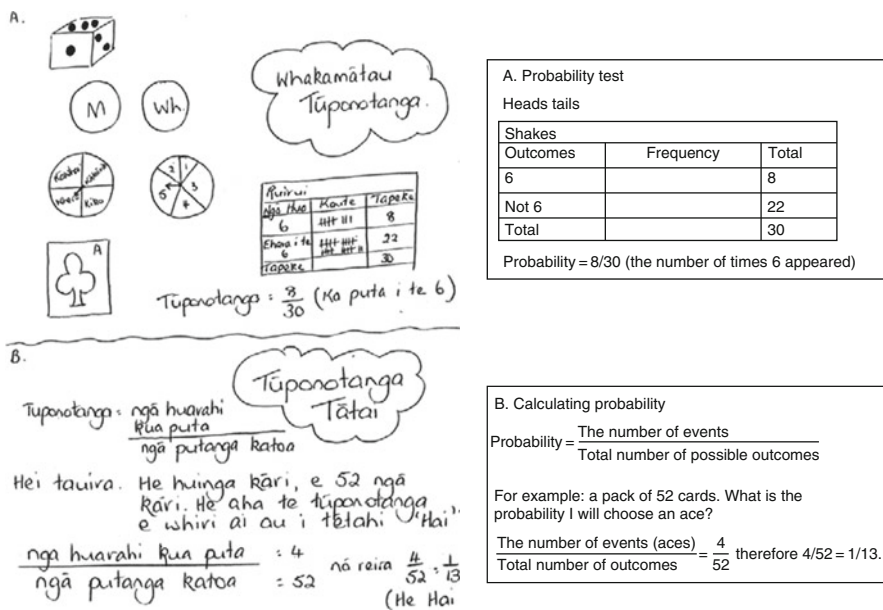 A.
M
Wh
Whakamātau
Tūponotanga.
2
1
3
4
5
A
Ruirui
Ngā Hua
Kaute
Tapeke
6
8
Ehara i te
6
22
Tapeke
30
Tūponotanga = 8/30 (Ka puta i te 6)
B.
Tūponotanga
Tātai
Tuponotanga = ngā huarahi
kua puta
ngā putanga katoa
Hei tauira. He huinga kāri, e 52 ngā
kāri. He aha te tūponotanga
e whiri ai au i tētahi 'Hai'
nga huarahi kua puta = 4
ngā putanga katoa = 52
nō reira 4/52 = 1/13
(He Hai
A. Probability test
Heads tails
Shakes
Outcomes Frequency Total
6 8
Not 6 22
Total 30
Probability = 8/30 (the number of times 6 appeared)
B. Calculating probability
Probability = The number of events
Total number of possible outcomes
For example: a pack of 52 cards. What is the
probability I will choose an ace?
The number of events (aces) = 4 therefore 4/52 = 1/13.
Total number of outcomes 52